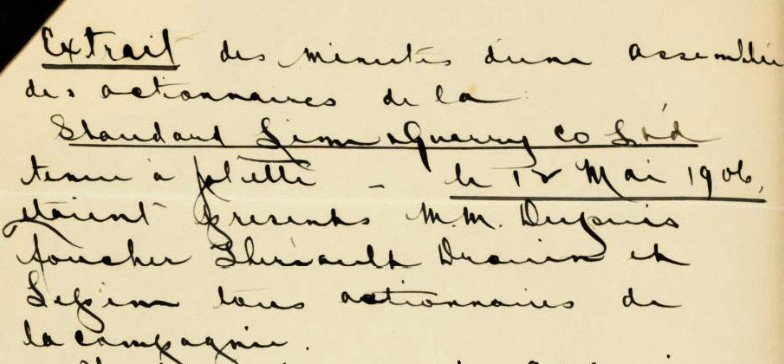 Extrait des minutes d'une assemblée
des actionnaires de la
Standard Lime & Quarry Co Ltd
tenue à Joliette _ le 12 Mai 1906,
etaient presents M.M. Dupuis
Foucher Theriault Drouin et
tous actionnaires de
la compagnie.